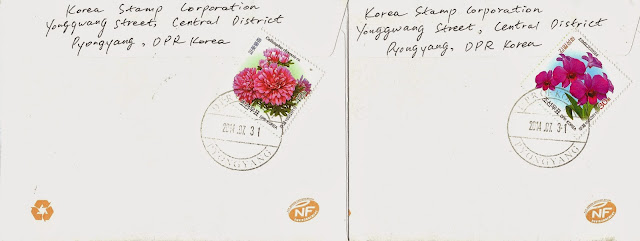 Korea Stamp Corporation
Yonggwang Street, Central District
Pyongyang, DPR Korea
2014.07.31
PYONGYANG
NF
Korea Stamp Corporation
Yonggwang Street, Central District
Pyongyang, DPR Korea
2014.07.31
PYONGYANG
NF